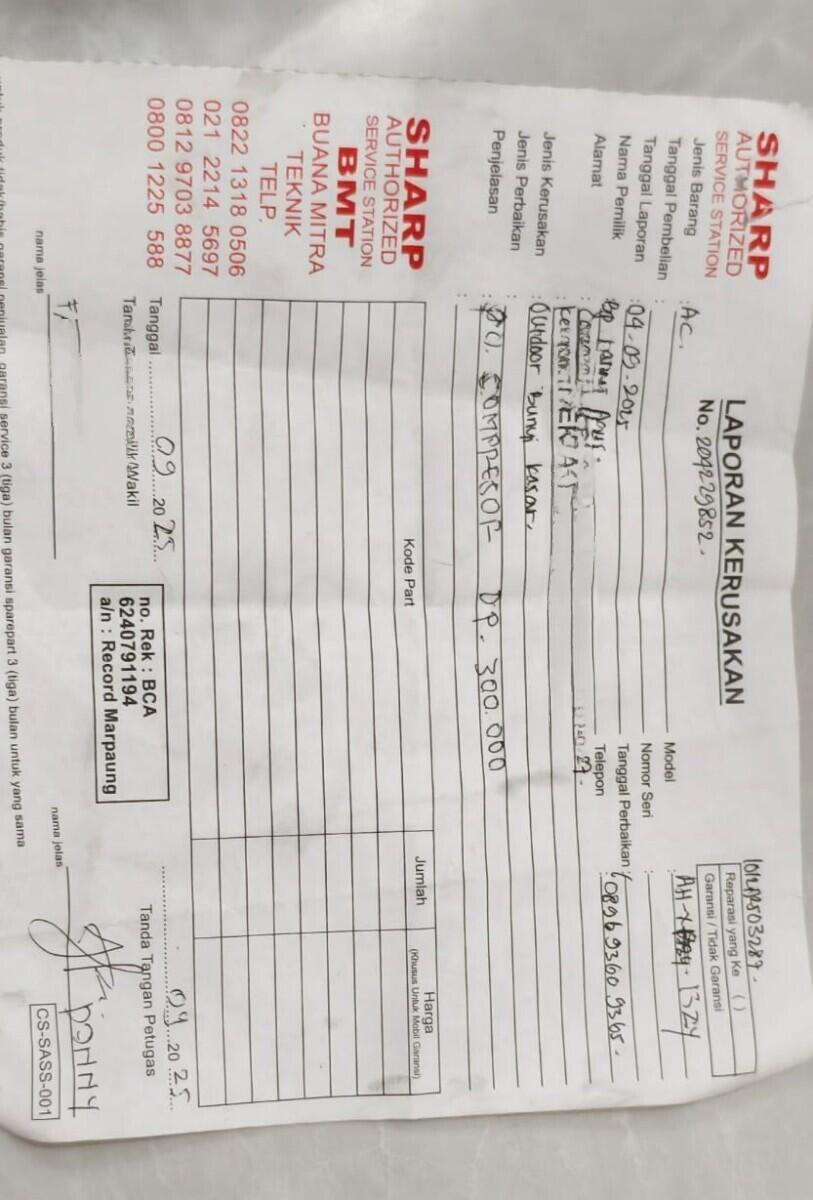 SHARP
AUTHORIZED
SERVICE STATION
LAPORAN KERUSAKAN
No. 209229852.
Reparasi yang Ke ( )
Garansi / Tidak Garansi
Jenis Barang : AC.
Model
Tanggal Pembelian :
Nomor Seri :
Tanggal Laporan : 04-09-2025
Tanggal Perbaikan :
Nama Pemilik
Telepon : 0896 9360 9365.
Alamat :
Jenis Kerusakan : Outdoor Bunyi kasar,
Jenis Perbaikan :
Penjelasan : COMPRESOR DP. 300.000
:
SHARP
AUTHORIZED
SERVICE STATION
BMT
BUANA MITRA
TEKNIK
TELP.
0822 1318 0506
021 2214 5697
0812 9703 8877
0800 1225 588
Kode Part
Jumlah
Harga
(Khusus Untuk Mobil Garansi)
Tanggal 09 2025
09 2025
Tanda Tangan Petugas
no. Rek : BCA
6240791194
a/n : Record Marpaung
nama jelas
nama jelas DONNY
CS-SASS-001
garansi service 3 (tiga) bulan garansi sparepart 3 (tiga) bulan untuk yang sama